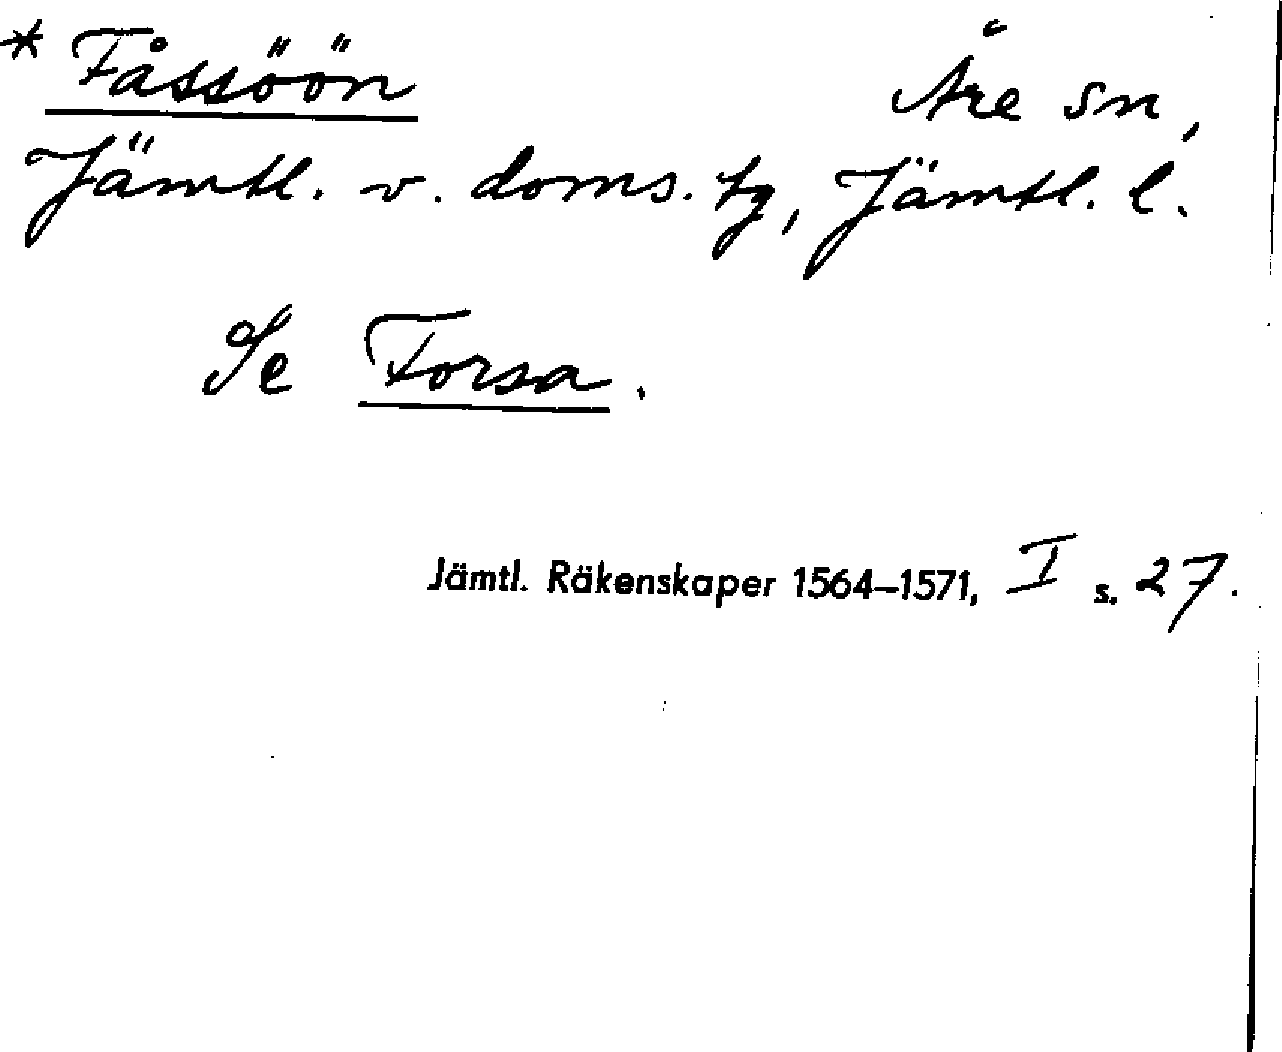 * Fåssöön Åre sn,
Jämtl. v. doms. tg, Jämtl. l.
Se Forsa.
Jämtl. Räkenskaper 1564–1571, I s. 27.